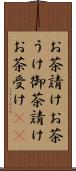 お茶請けお茶
うけ御茶請け
お茶受け((